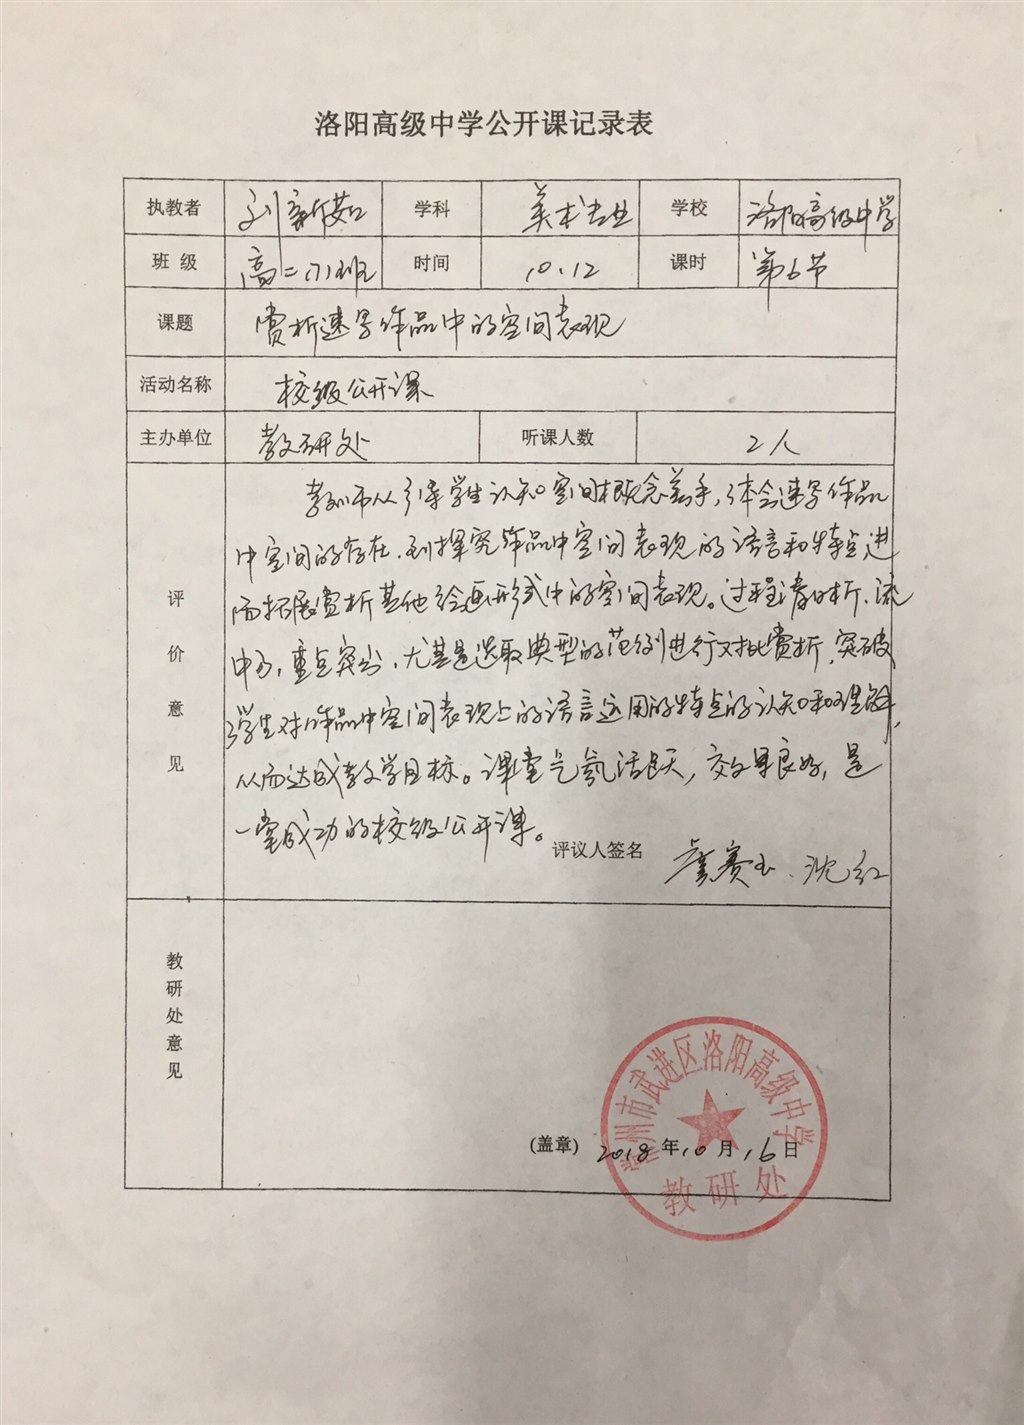 洛阳高级中学公开课记录表
执教者 刘新茹 学科 美术专业 学校 洛阳高级中学
班 级 高二(7)班 时间 10.12 课时 第6节
课题 赏析速写作品中的空间表现
活动名称 校级公开课
主办单位 教研处 听课人数 2人
评价意见
教师从引导学生认知空间概念着手,体会速写作品
中空间的存在.到探究作品中空间表现的语言和特点进
而拓展赏析其他绘画形式中的空间表现。过程清晰、流
重点突出,尤其是选取典型的范例进行对比赏析,突破
学生对作品中空间表现上的语言运用的特点的认知和理解,
从而达成教学目标。课堂气氛活跃,效果良好,是
一堂成功的校级公开课。
评议人签名 虞赛玉、沈红
教研处意见
常州市武进区洛阳高级中学
(盖章) 2018年10月16日
教研处